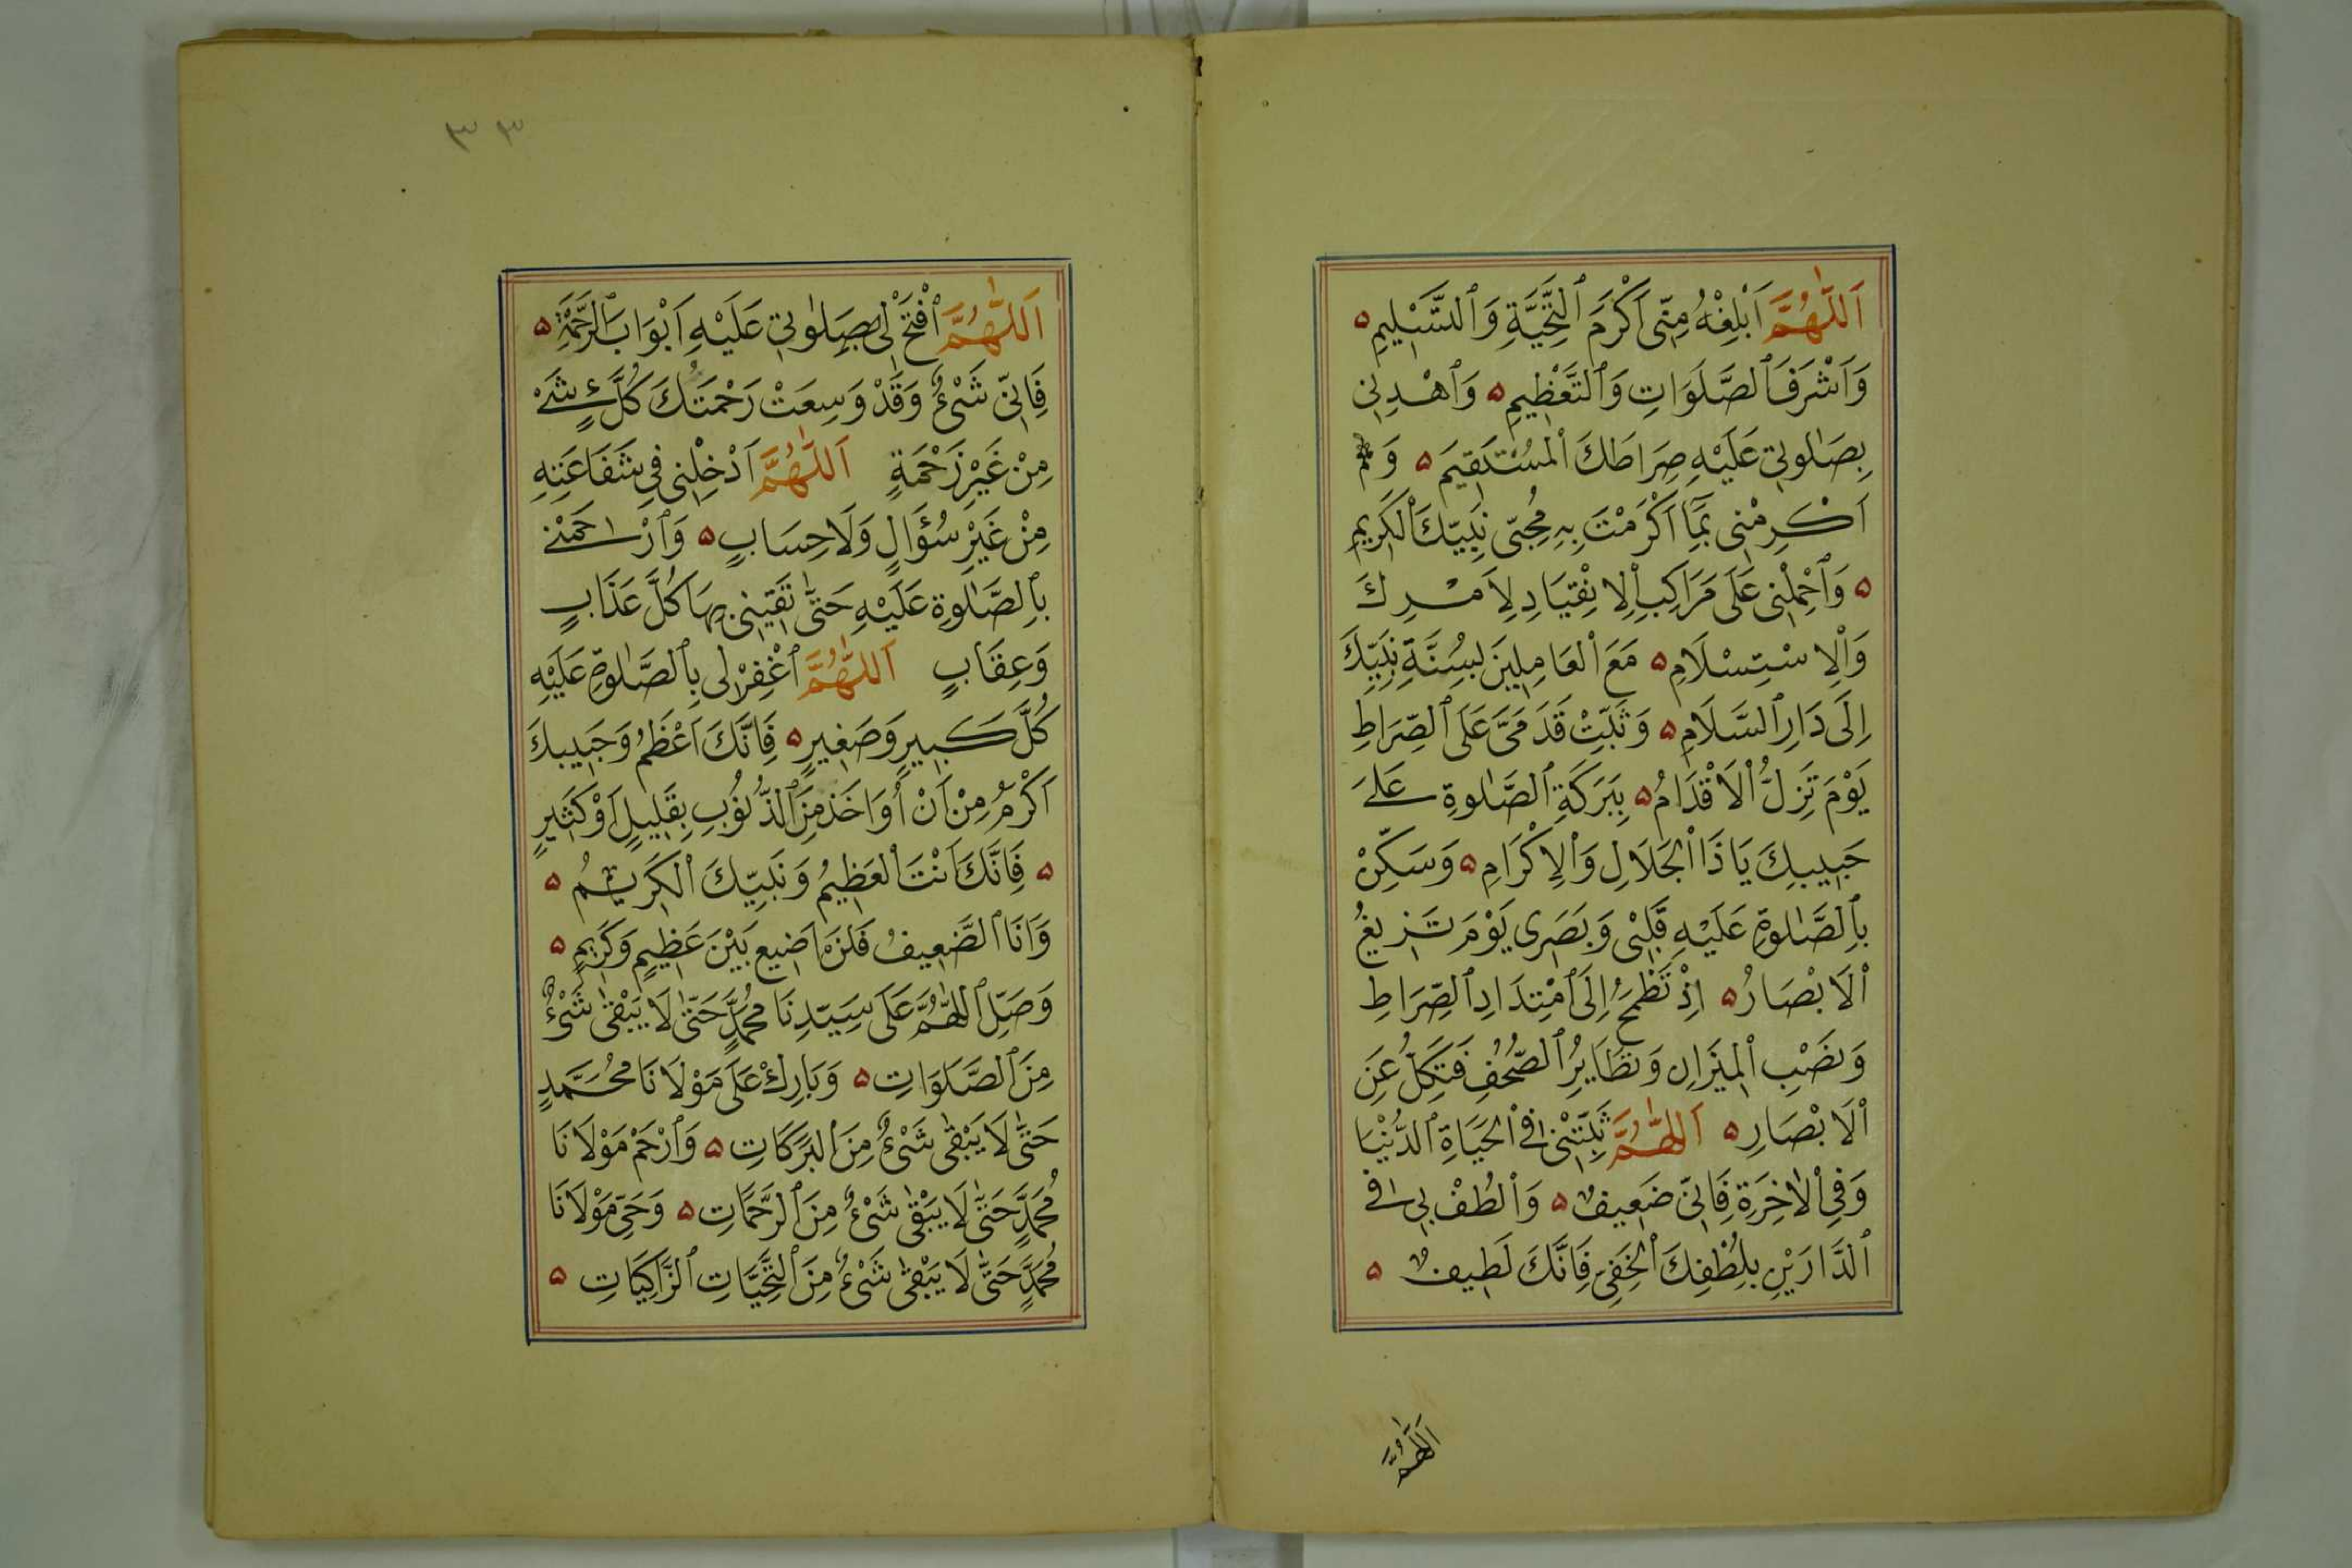 اَللّٰهُمَّ اَبْلِغْهُ مِنّى اَكْرَمَ ٱلتَّحِيَّةِ وَٱلتَّسْلِيمِ ه
وَاَشْرَفَ ٱلصَّلَوَاتِ وَٱلتَّعْظِيمِ ه وَٱهْدِنِى
بِصَلٰوتِى عَلَيْهِ صِرَاطَكَ ٱلْمُسْتَقِيمَ ه وَ
اَكْرِمْنِى بِمَا اَكْرَمْتَ بِهِ مُحِبّى نَبِيّكَ ٱلْكَرِيمِ
ه وَٱحْمِلْنِى عَلَى مَرَاكِبِ ٱلِانْقِيَادِ لِاَمْرِكَ
وَٱلِاسْتِسْلَامِ ه مَعَ ٱلعَامِلِينَ بِسُنَّةِ نَبِيّكَ
اِلَى دَارِ ٱلسَّلَامِ ه وَثَبِّتْ قَدَمَىَّ عَلَى ٱلصِّرَاطِ
يَوْمَ تَزِلُّ ٱلْاَقْدَامُ ه بِبَرَكَةِ ٱلصَّلٰوةِ عَلَى
حَبِيبِكَ يَا ذَا ٱلْجَلَالِ وَٱلْاِكْرَامِ ه وَسَكِّنْ
بِٱلصَّلٰوةِ عَلَيْهِ قَلْبِى وَبَصَرِى يَوْمَ تَزِيغُ
ٱلْاَبْصَارُ ه اِذْ تَطْمَحُ اِلَى ٱمْتِدَادِ ٱلصِّرَاطِ
وَنَصْبِ ٱلْمِيزَانِ وَتَطَايُرِ ٱلصُّحُفِ فَتَكِلُّ عَنِ
ٱلْاَبْصَارِ ه اَللّٰهُمَّ ثَبِّتْنِى فِى ٱلْحَيَاةِ ٱلدُّنْيَا
وَفِى ٱلْاٰخِرَةِ فَاِنّى ضَعِيفٌ ه وَٱلْطُفْ بِى فِى
ٱلدَّارَيْنِ بِلُطْفِكَ ٱلْخَفِىِّ فَاِنَّكَ لَطِيفٌ ه
اَللّٰهُمَّ
٣٣
اَللّٰهُمَّ ٱفْتَحْ لِى بِصَلٰوتِى عَلَيْهِ اَبْوَابَ ٱلرَّحْمَةِ ه
فَاِنّى شَىْءٌ وَقَدْ وَسِعَتْ رَحْمَتُكَ كُلَّ شَىْءٍ
مِنْ غَيْرِ زَحْمَةٍ اَللّٰهُمَّ اَدْخِلْنِى فِى شَفَاعَتِهِ
مِنْ غَيْرِ سُؤَالٍ وَلَا حِسَابٍ ه وَٱرْحَمْنِى
بِٱلصَّلٰوةِ عَلَيْهِ حَتّٰى تَقِيَنِى بِهَا كُلَّ عَذَابٍ
وَعِقَابٍ اَللّٰهُمَّ ٱغْفِرْلِى بِٱلصَّلٰوةِ عَلَيْهِ
كُلَّ كَبِيرٍ وَصَغِيرٍ ه فَاِنَّكَ اَعْظَمُ وَحَبِيبكَ
اَكْرَمُ مِنْ اَنْ أُوَاخَذَ مِنَ ٱلذُّنُوبِ بِقَلِيلٍ اَوْ كَثِيرٍ
ه فَاِنَّكَ اَنْتَ ٱلعَظِيمُ وَنَبِيّكَ ٱلْكَرِيمُ ه
وَاَنَا ٱلضَّعِيفُ فَلَنْ اَضِيع بَيْنَ عَظِيمٍ وَكَرِيمٍ ه
وَصَلِّ ٱللّٰهُمَّ عَلَى سَيّدِنَا مُحَمَّدٍ حَتّٰى لَا يَبْقٰى شَىْءٌ
مِنَ ٱلصَّلَوَاتِ ه وَبَارِكْ عَلَى مَوْلَانَا مُحَمَّدٍ
حَتّٰى لَا يَبْقٰى شَىْءٌ مِنَ ٱلبَرَكَاتِ ه وَٱرْحَمْ مَوْلَانَا
مُحَمَّدٍ حَتّٰى لَا يَبْقٰى شَىْءٌ مِنَ ٱلرَّحَمَاتِ ه وَحَىِّ مَوْلَانَا
مُحَمَّدٍ حَتّٰى لَا يَبْقٰى شَىْءٌ مِنَ ٱلتَّحِيَّاتِ ٱلزَّاكِيَاتِ ه